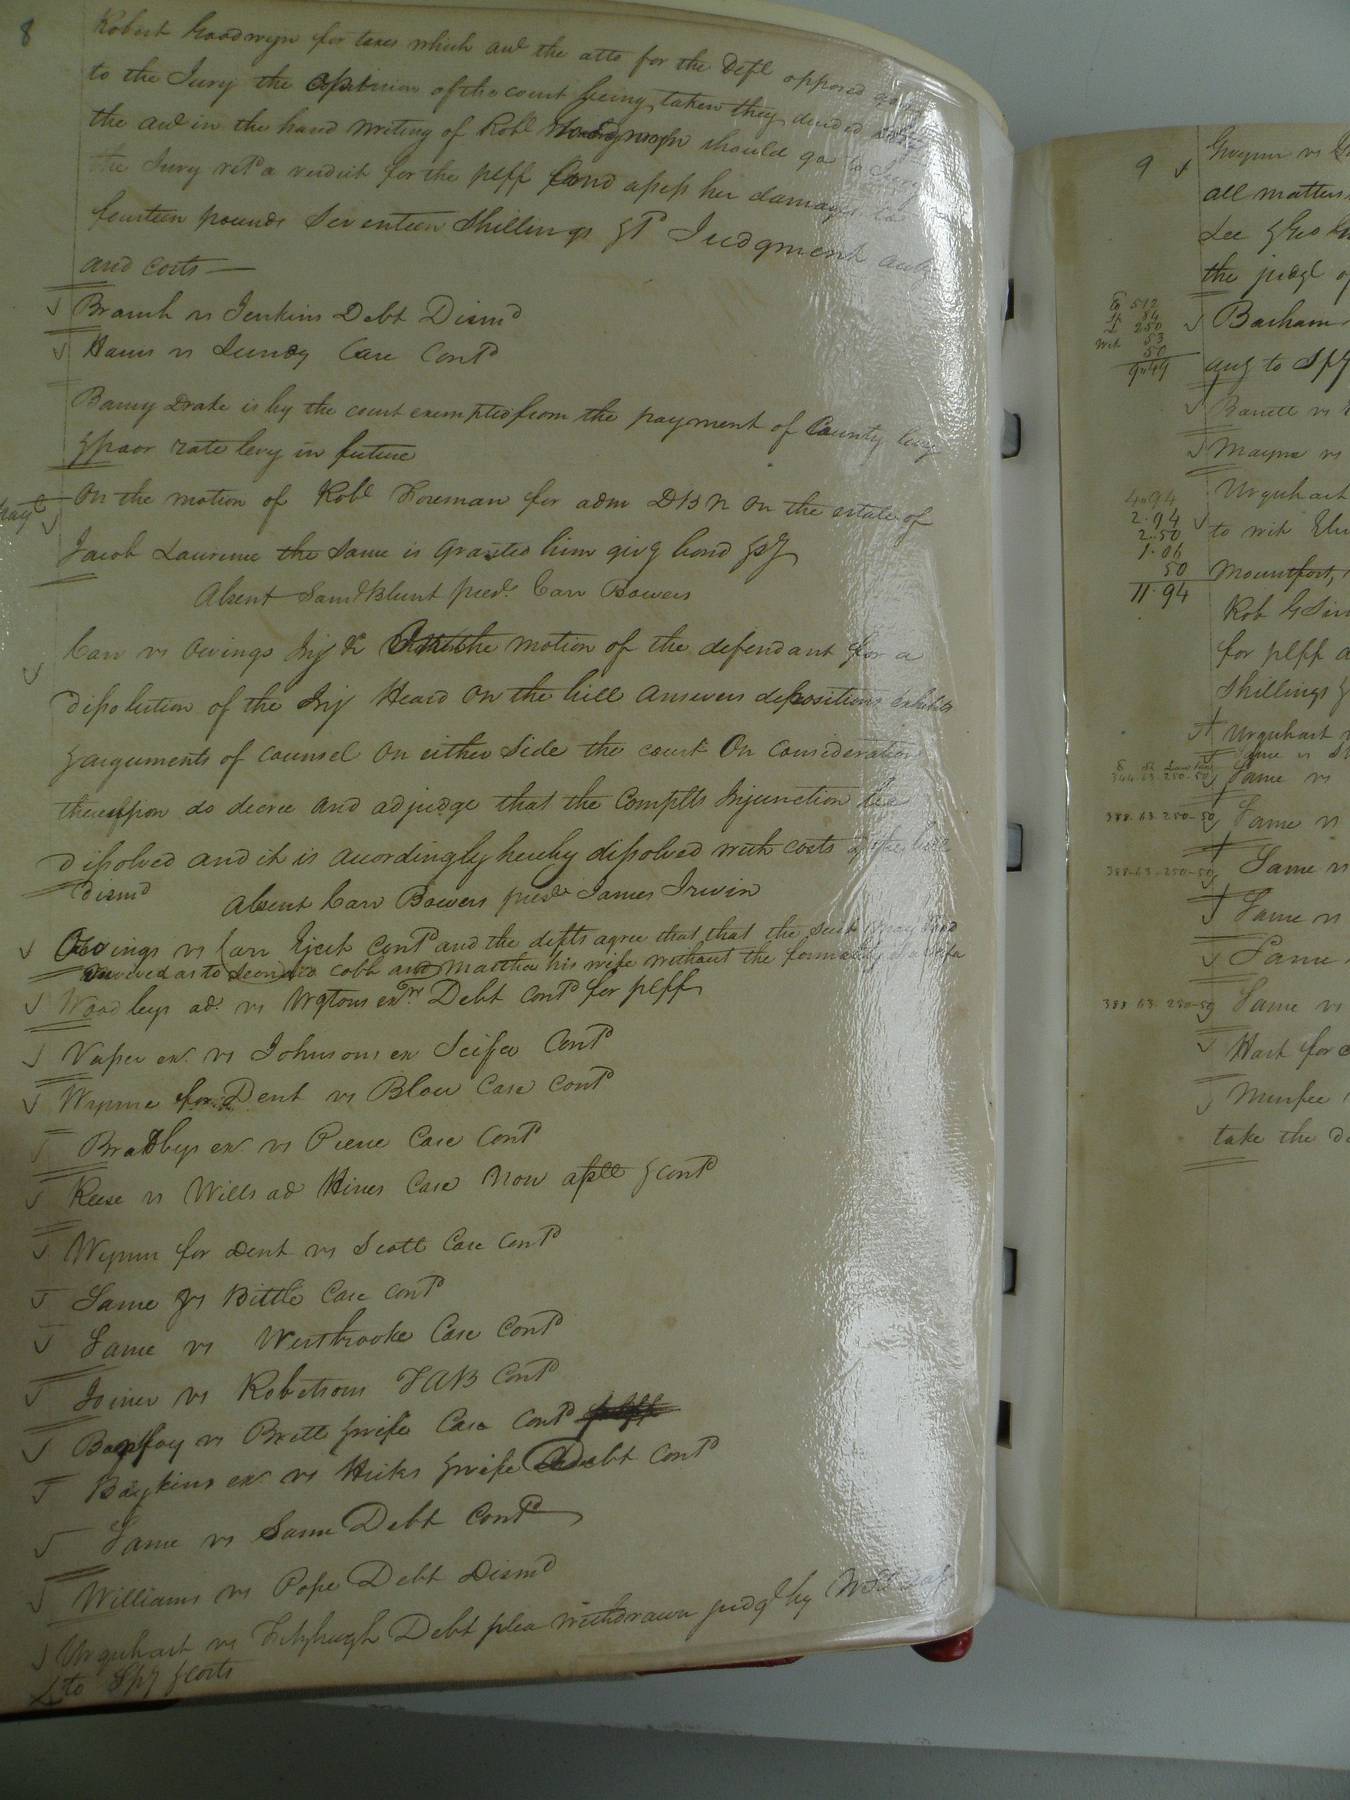 8
Robert Goodwyn for taxes which acct the atto for the Deft opposed going
to the Jury the opinion of the court being taken they decided
the acct in the hand writing of Robt Goodwyn should go to Jury
the Jury retd a verdict for the plff and assess her damages to
fourteen pounds Seventeen Shillings &c Judgment
and costs —
Branch vs Jenkins Debt Dismd
vs Case Contd
Barny Drake is by the court exempted from the payment of County levy
& poor rate levy in future
On the motion of Robt Foreman for adm DBN on the estate of
Jacob Laurence the same is granted him givg bond &c
Absent Saml Blunt prest Carr Bowers
Carr vs Owings Inj &c On the motion of the defendant for a
dissolution of the Inj Heard On the bill answers depositions exhibits
& arguments of counsel On either Side the court On Consideration
thereupon do decree and adjudge that the Complts Injunction be
dissolved and it is accordingly hereby dissolved with costs & the bill
dismd
Absent Carr Bowers prest James Irwin
Owings vs Carr Eject Contd and the defts agree that that the Suit may
as to Cobb and Martha his wife without the formality of a
Woodleys ad. vs exrs Debt Contd for plff
ex. vs Johnsons ex Scifa Contd
Wynne for Dent vs Blow Case Contd
Bradbys ex. vs Pierce Case Contd
Reese vs Wills ad Hines Case Now &contd
Wynne for Dent vs Scott Case Contd
Same vs Bittle Case Contd
Same vs Westbrooke Case Contd
Joiner vs Robertsons TAB Contd
vs Britt &wife Case Contd
Boykins ex. vs Hicks &wife Debt Contd
Same vs Same Debt Contd
Williams vs Pope Debt Dismd
Urquhart vs Fitzhugh Debt plea withdrawn judgt by
to Spy &costs
9
all matters
Lee & Geo
the judgt of
512
84
250
53
50
9.49
Barham
to Spy
Barrett vs
Mayne vs
4.94
2.94
2.50
1.06
50
11.94
Urquhart
to wit
Mountfort,
Rob
for plff
Shillings &
Urquhart
Same vs
344.63.250.50
Same vs
388.63.250-50
Same vs
388-63-250-50
Same vs
Same vs
Same
388.63.250-50
Same vs
Hart for
Minfee
take the